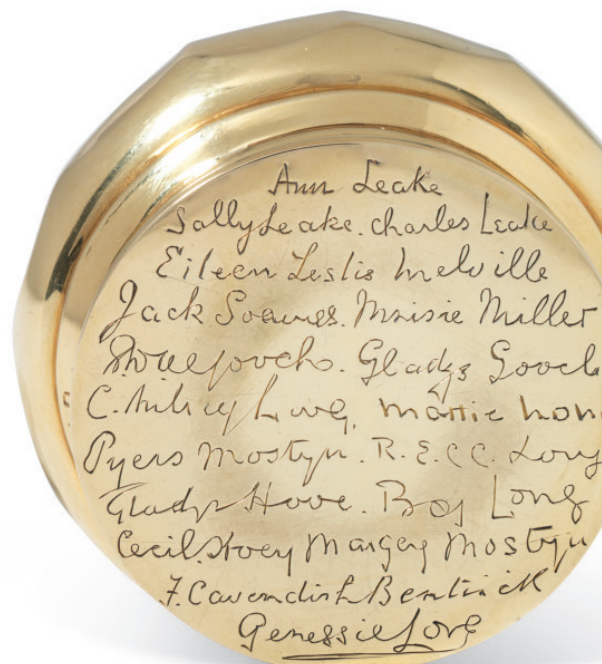 Ann Leake
Sally Leake. Charles Leake
Eileen Leslie Melville
Jack Soames. Maisie Miller
Gladys Gooch
C. Long, Mattie
Pyers Mostyn. R.E.C.C. Long
Gladys Hove. Boy Long
Cecil Hoey Margery Mostyn
F. Cavendish Bentinck
Genessie Long